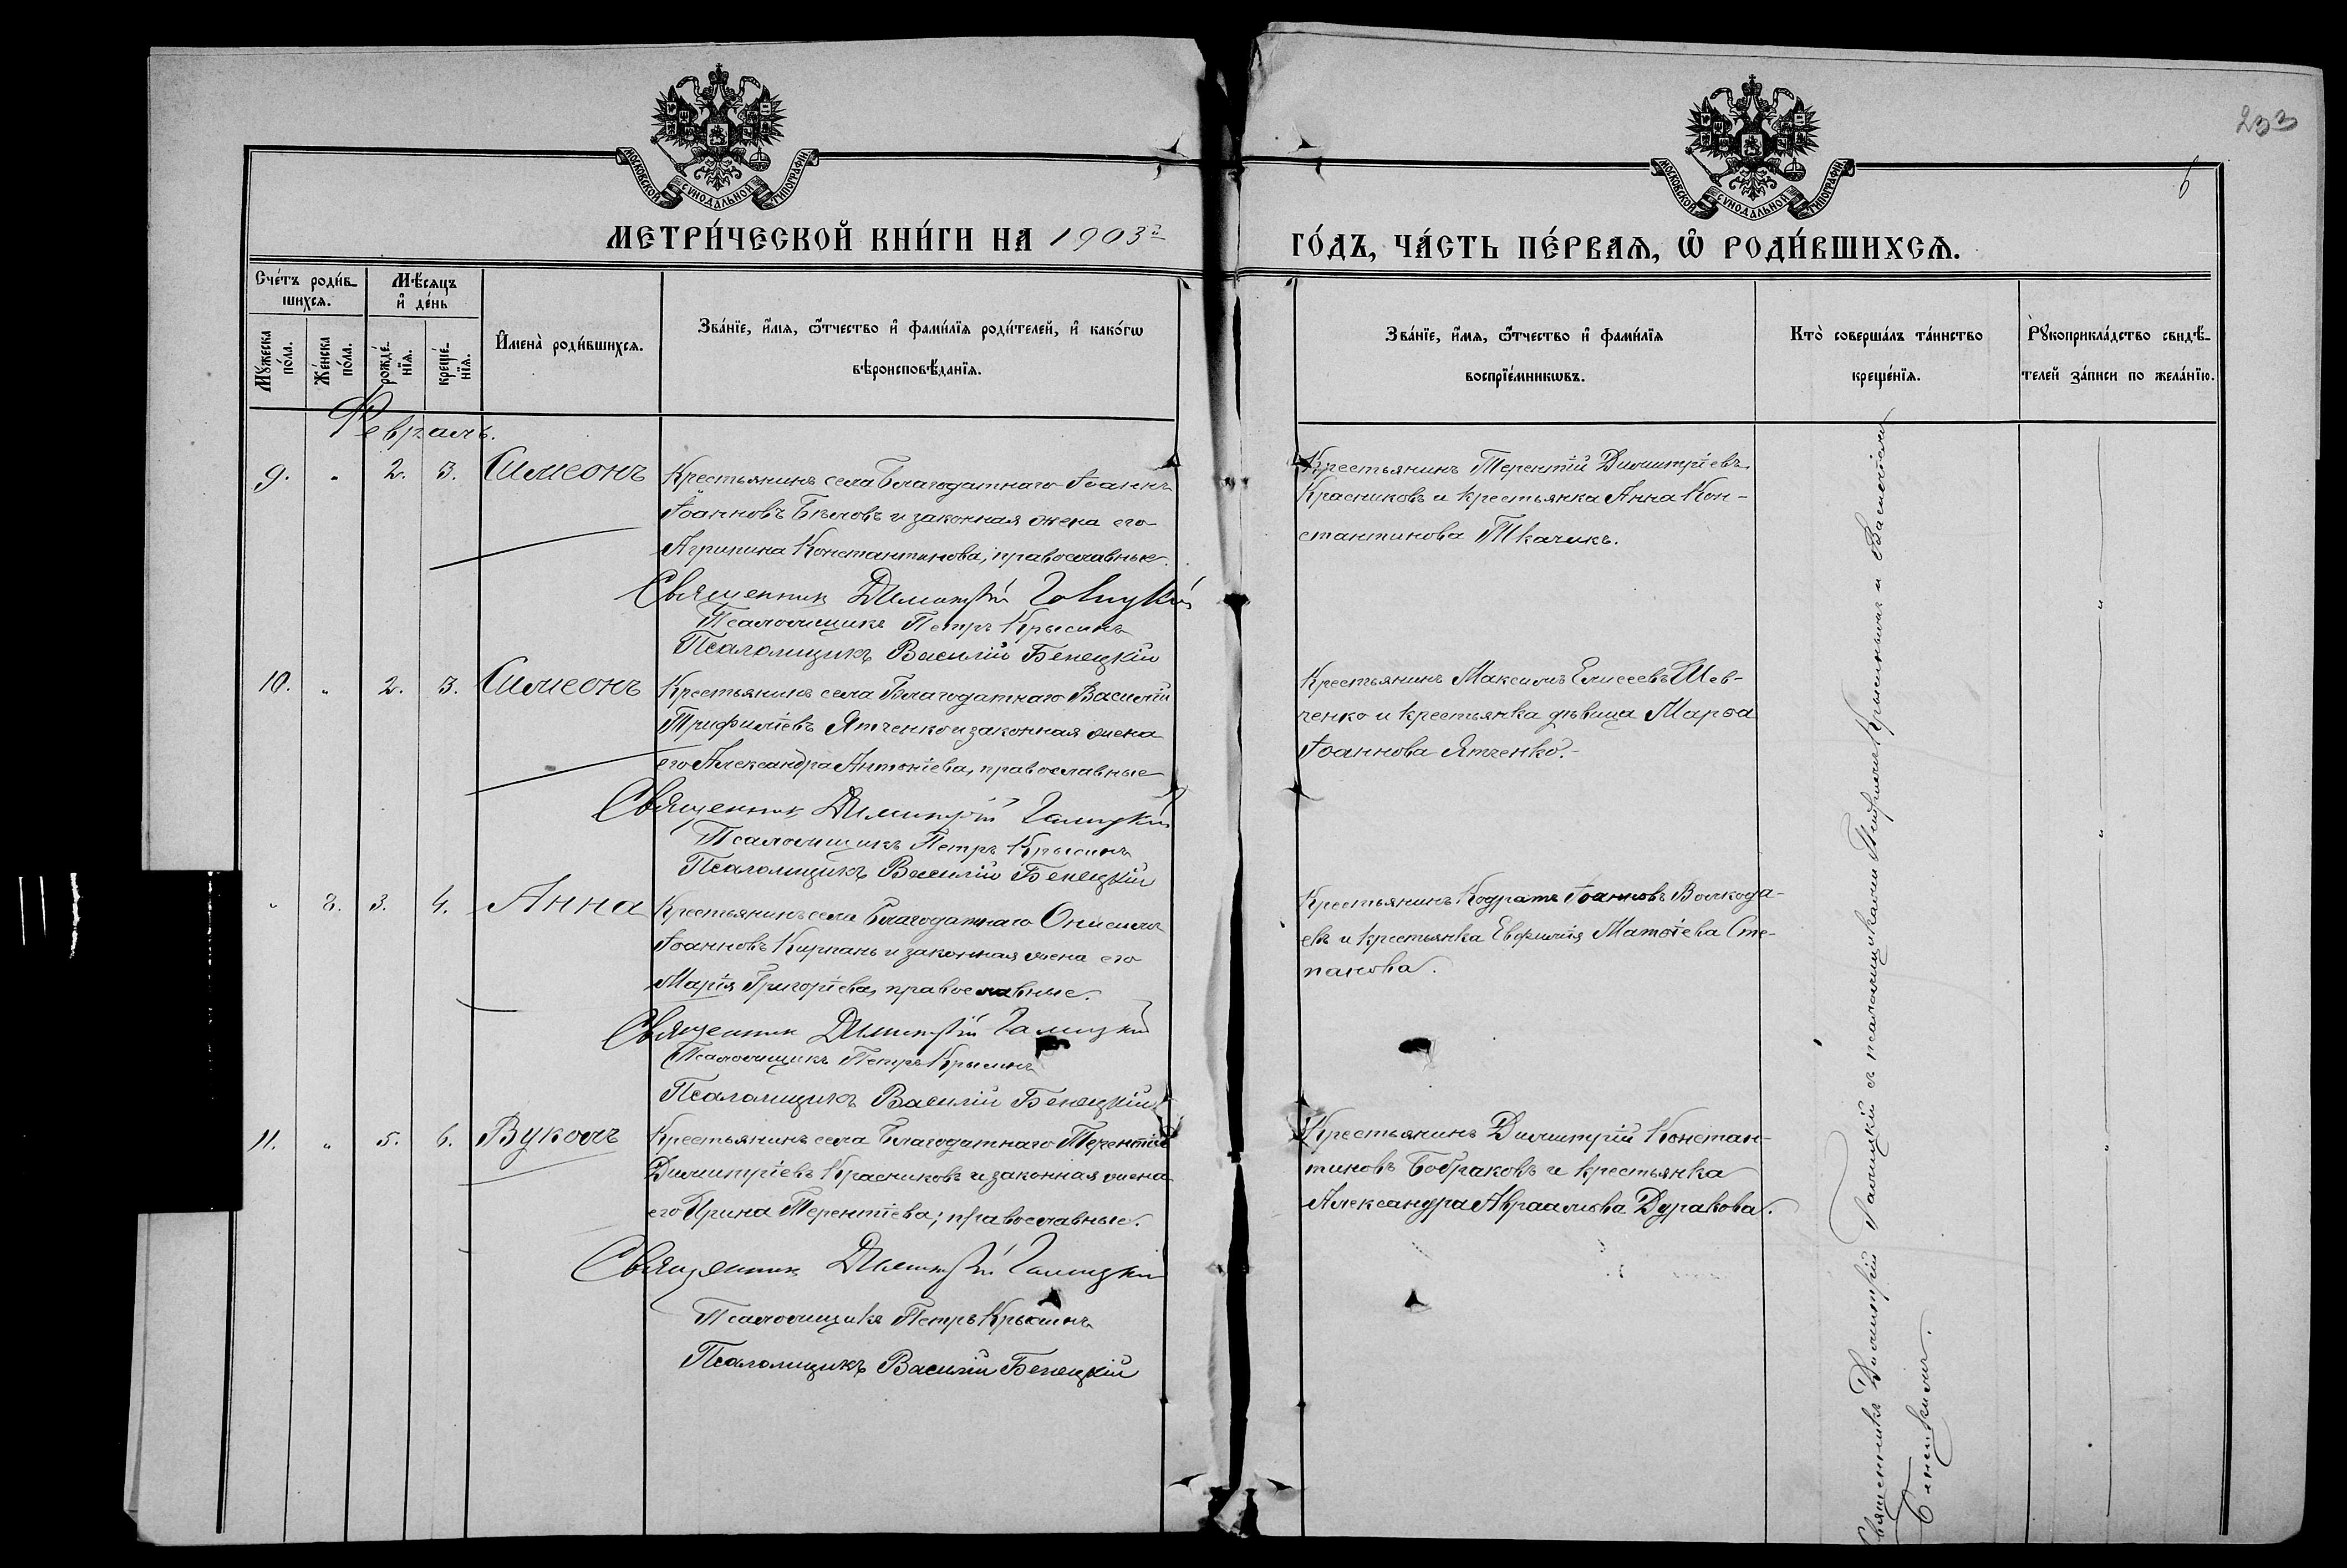 233
6
МОСКОВСКОЙ СѴНОДАЛЬНОЙ ТИПОГРАФІИ
МОСКОВСКОЙ СѴНОДАЛЬНОЙ ТИПОГРАФІИ
МЕТРИ́ЧЕСКОЙ КНИ́ГИ НА 1903 г
ГО́ДЪ, ЧА́СТЬ ПЕ́РВАѦ, Ѡ҆ РОДИ́ВШИХСѦ.
Сче́тъ роди́в-
шихсѧ.
Мꙋ́жеска по́ла.
Же́нска по́ла.
Мѣ́сѧцъ
и҆ де́нь
рожде́-
нїѧ.
креще́-
нїѧ.
И҆мена̀ роди́вшихсѧ.
Зва́нїе, и҆́мѧ, ѻ҆́тчество и҆ фами́лїѧ роди́телей, и҆ како́гѡ
вѣроисповѣ́данїѧ.
Зва́нїе, и҆́мѧ, ѻ҆́тчество и҆ фами́лїѧ
воспрїе́мникѡвъ.
Кто̀ соверша́лъ та́инство
креще́нїѧ.
Рꙋкоприкла́дство свидѣ́-
телей за́писи по жела́нїю.
Февраль.
9. " 2. 3. Симеонъ
Крестьянинъ села Благодатнаго Іоаннъ
Іоанновъ Бѣловъ и законная жена его
Агрипина Константинова, православные.
Священник Димитрій Галицкій
Псаломщикъ Петръ Крысинъ
Псаломщикъ Василій Бенецкій
Крестьянинъ Терентій Димитріевъ
Красниковъ и крестьянка Анна Кон-
стантинова Ткачикъ.
10. " 2. 3. Симеонъ
Крестьянинъ села Благодатнаго Василій
Трифиліевъ Ятченко и законная жена
его Александра Антоніева, православные
Священник Димитрій Галицкій
Псаломщикъ Петръ Крысинъ
Псаломщикъ Василій Бенецкій
Крестьянинъ Максимъ Елисеевъ Шев-
ченко и крестьянка дѣвица Марѳа
Іоаннова Ятченко.
" 8. 3. 4. Анна
Крестьянинъ села Благодатнаго Онисимъ
Іоанновъ Кирпань и законная жена его
Марія Григоріева, православные.
Священник Димитрій Галицкій
Псаломщикъ Петръ Крысинъ
Псаломщикъ Василій Бенецкій
Крестьянинъ Кодратъ Іоанновъ Волкода-
евъ и крестьянка Евфимія Матѳіева Сте-
панова.
11. " 5. 6. Вуколъ
Крестьянинъ села Благодатнаго Терентій
Димитріевъ Красниковъ и законная жена
его Ирина Терентіева, православные.
Священник Димитрій Галицкій
Псаломщикъ Петръ Крысинъ
Псаломщикъ Василій Бенецкій
Крестьянинъ Димитрій Констан-
тиновъ Бобраковъ и крестьянка
Александра Авраамова Дуракова.
Священникъ Димитрій Галицкій съ псаломщиками Петромъ Крысинымъ и Василіемъ
Бенецкимъ.